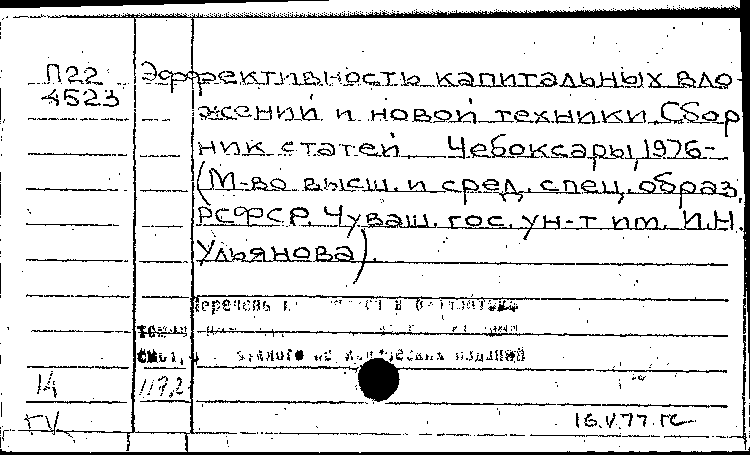 П22 Эффективность капитальных вло-
4523 жений и новой техники. Сбор
ник статей. Чебоксары, 1976-
(М-во высш. и сред. спец. образ.
РСФСР. Чуваш. гос. ун-т им. И.Н.
Ульянова).
Перечень в библиотеке
изданий
14 117,2
ГК 16.V.77 гс